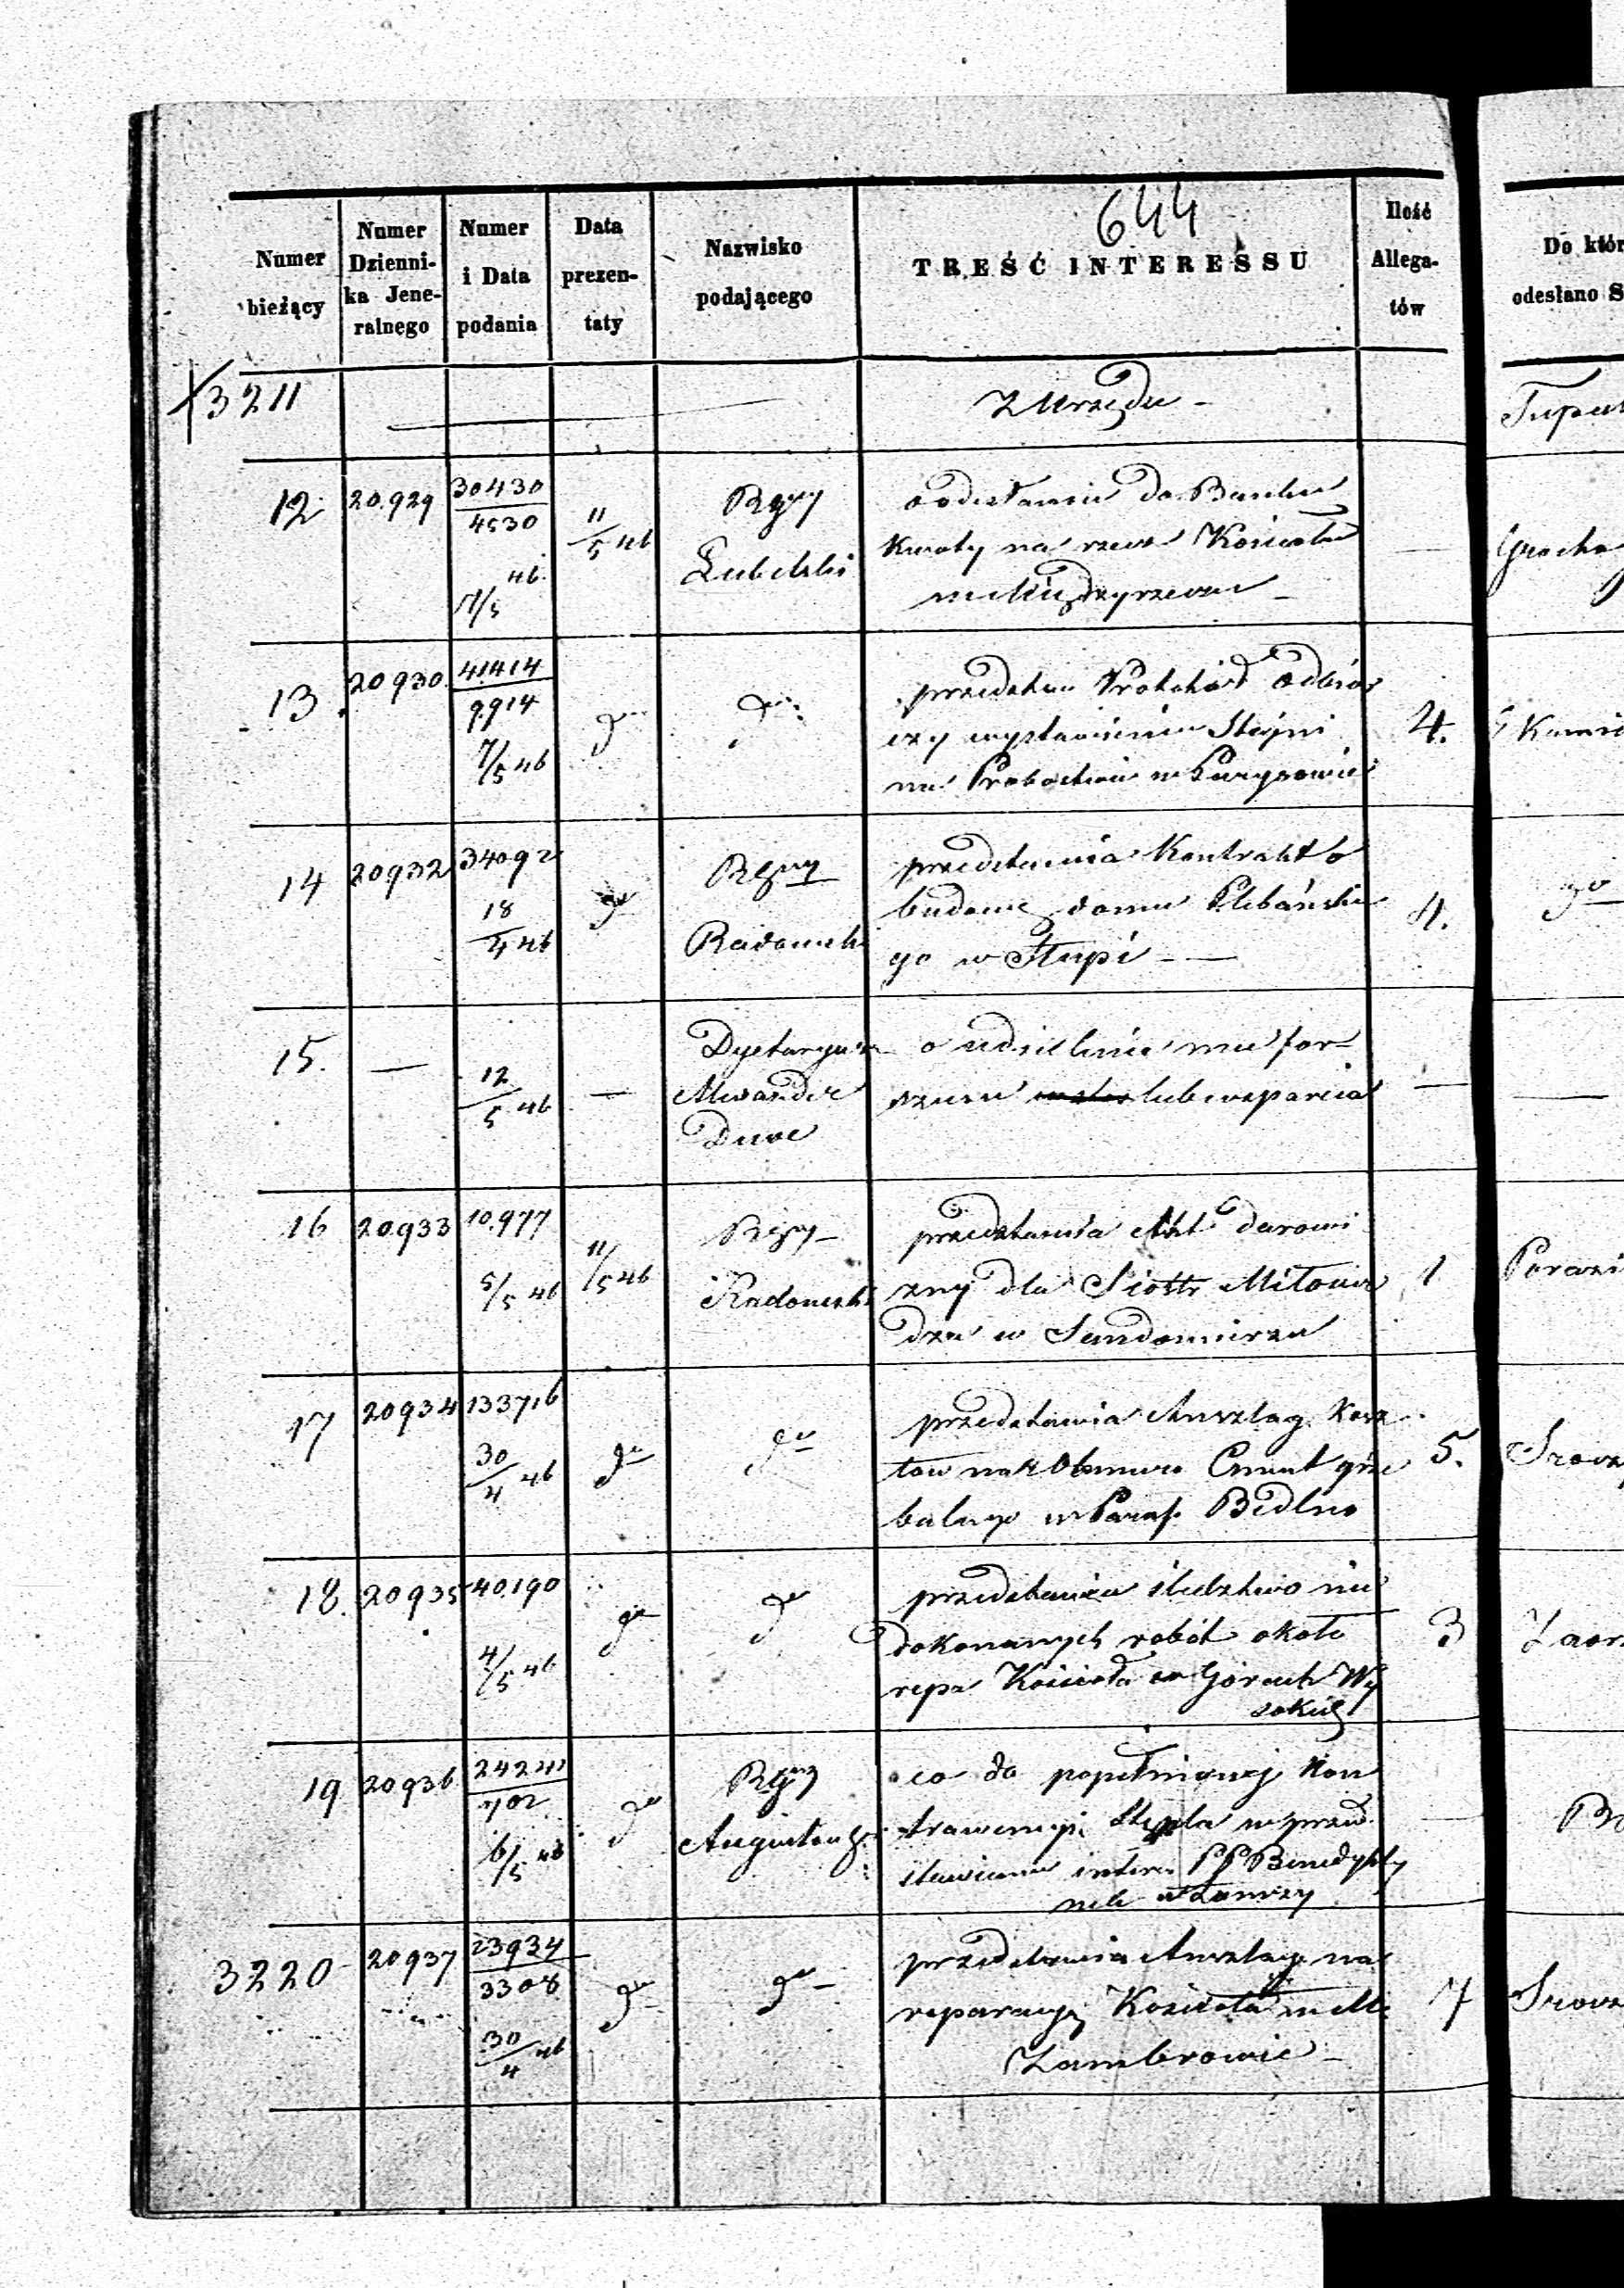 644
Numer
bieżący
Numer
Dzienni-
ka Jene-
ralnego
Numer
i Data
podania
Data
prezen-
taty
Nazwisko
podającego
TREŚĆ INTERESSU
Ilość
Allega-
tów
Do któr
odesłano S
3211
Z Urzędu -
12
20.929
30430
4530
46
7/5
11/5 46
Rgy
Lubelski
o odesłanie do Banku
Kwoty na rzecz Kościoła
w Międzyrzecu -
13.
20930
41414
9914
7/5 46
do
do
przedstaw Protokół Odbior
czy wystawienia Stajni
na Probostwie w Parysowie
4.
14
20932
34092
18/4 46
do
Rgy
Radomsk
przedstawia Kontrakt o
budowę domu Plebańskie
go w Słupi - —
4.
do
15.
—
12/5 46
—
Dyetaryusz
Alexander
o udzielenie mu for-
szusu lub wsparcia
—
—
16
20933
10.977
5/5 46
11/5 46
Rgy -
Radomski
przedstawia Akt darowi
zny dla Siostr Miłosier
dzia w Sandomierzu
1
17
20934
133716
30/4 46
do
do
przedstawia Anszlag Kosz
tow na Cment grze
balnego w Paraf. Bedlno
5.
18.
20935
40.190
4/5 46
do
do
przedstawia śledztwo nie
dokonanych robót około
repa Kościoła w Górach Wy
sokich
3
19
20936
24241
702
6/5 46
do
Rgy
Augustow
co do popełnionej Kon
trawencyi Stępla w przed
stawieniu interes PP Benedykty
nek w Łomży
3220
20937
23934
3308
30/4 46
do
do -
przedstawia Anszlag na
reparacyę Kościoła w M.
Zambrowie -
7